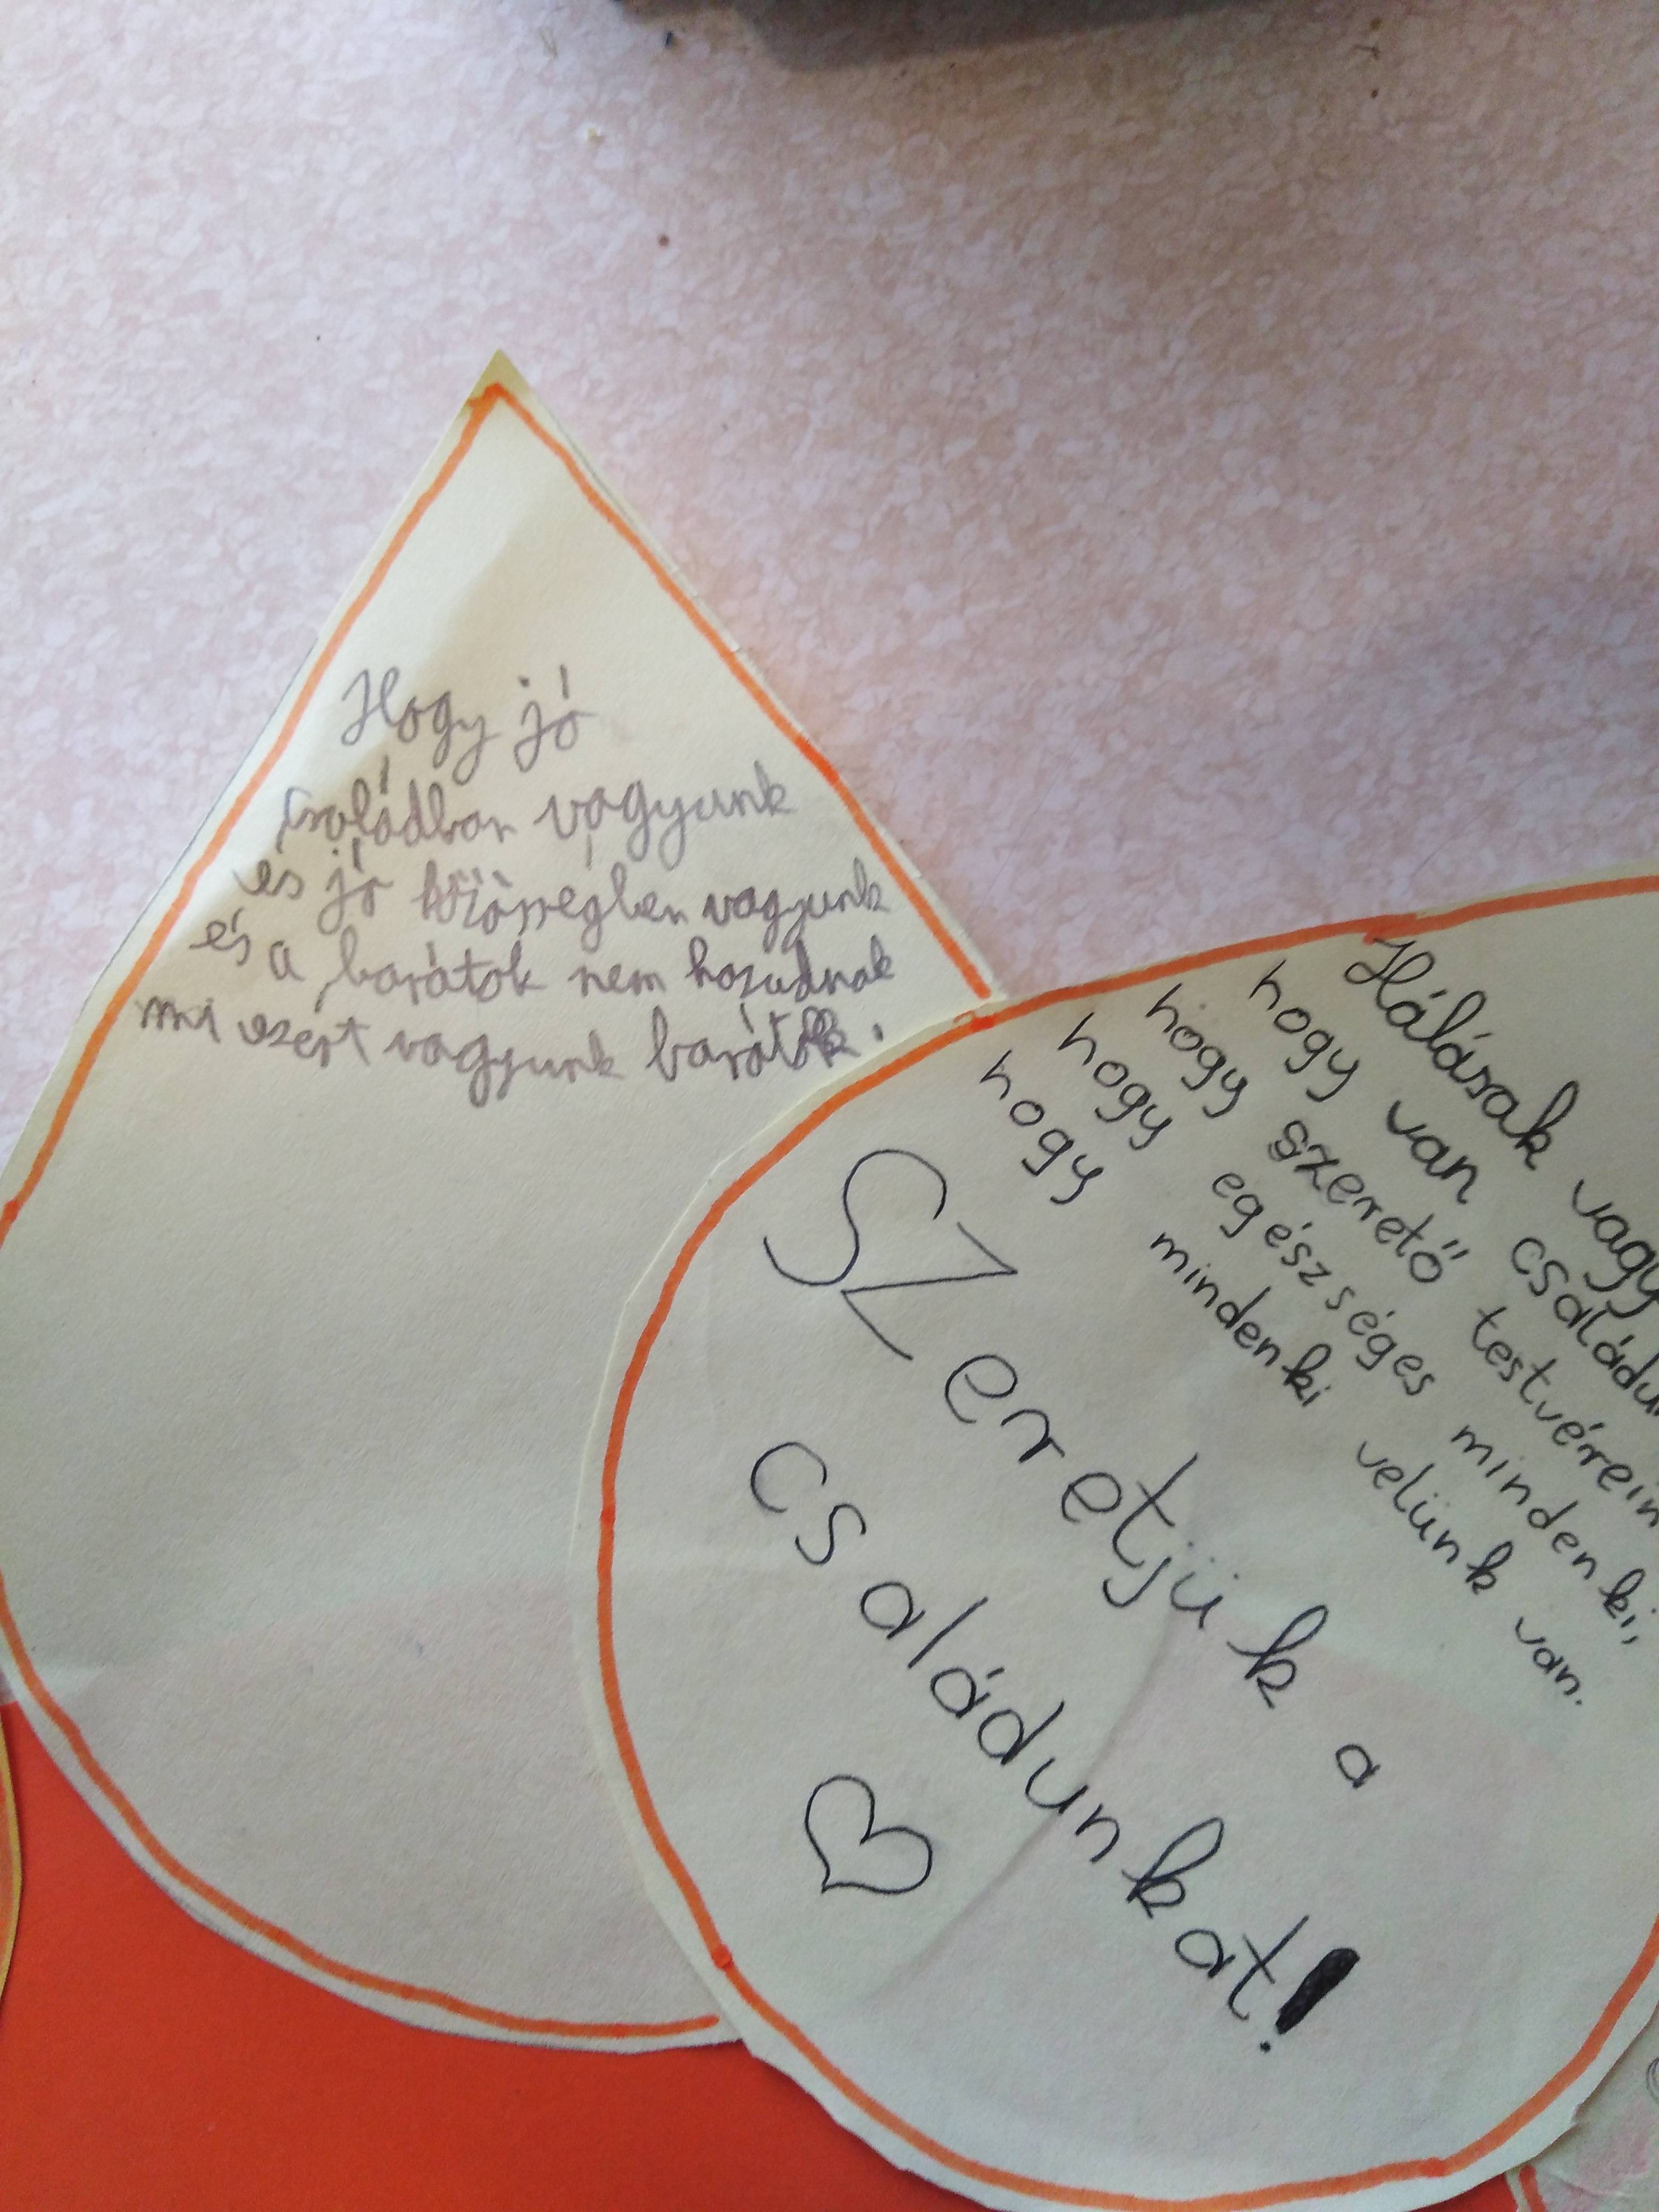 Hogy jó
családban vagyunk
és jó közösségben vagyunk
és a barátok nem hazudnak
mi ezért vagyunk barátok.
Hálásak
hogy van
hogy szerető
hogy egészséges mindenki,
hogy mindenki velünk van.
Szeretjük a
családunkat!